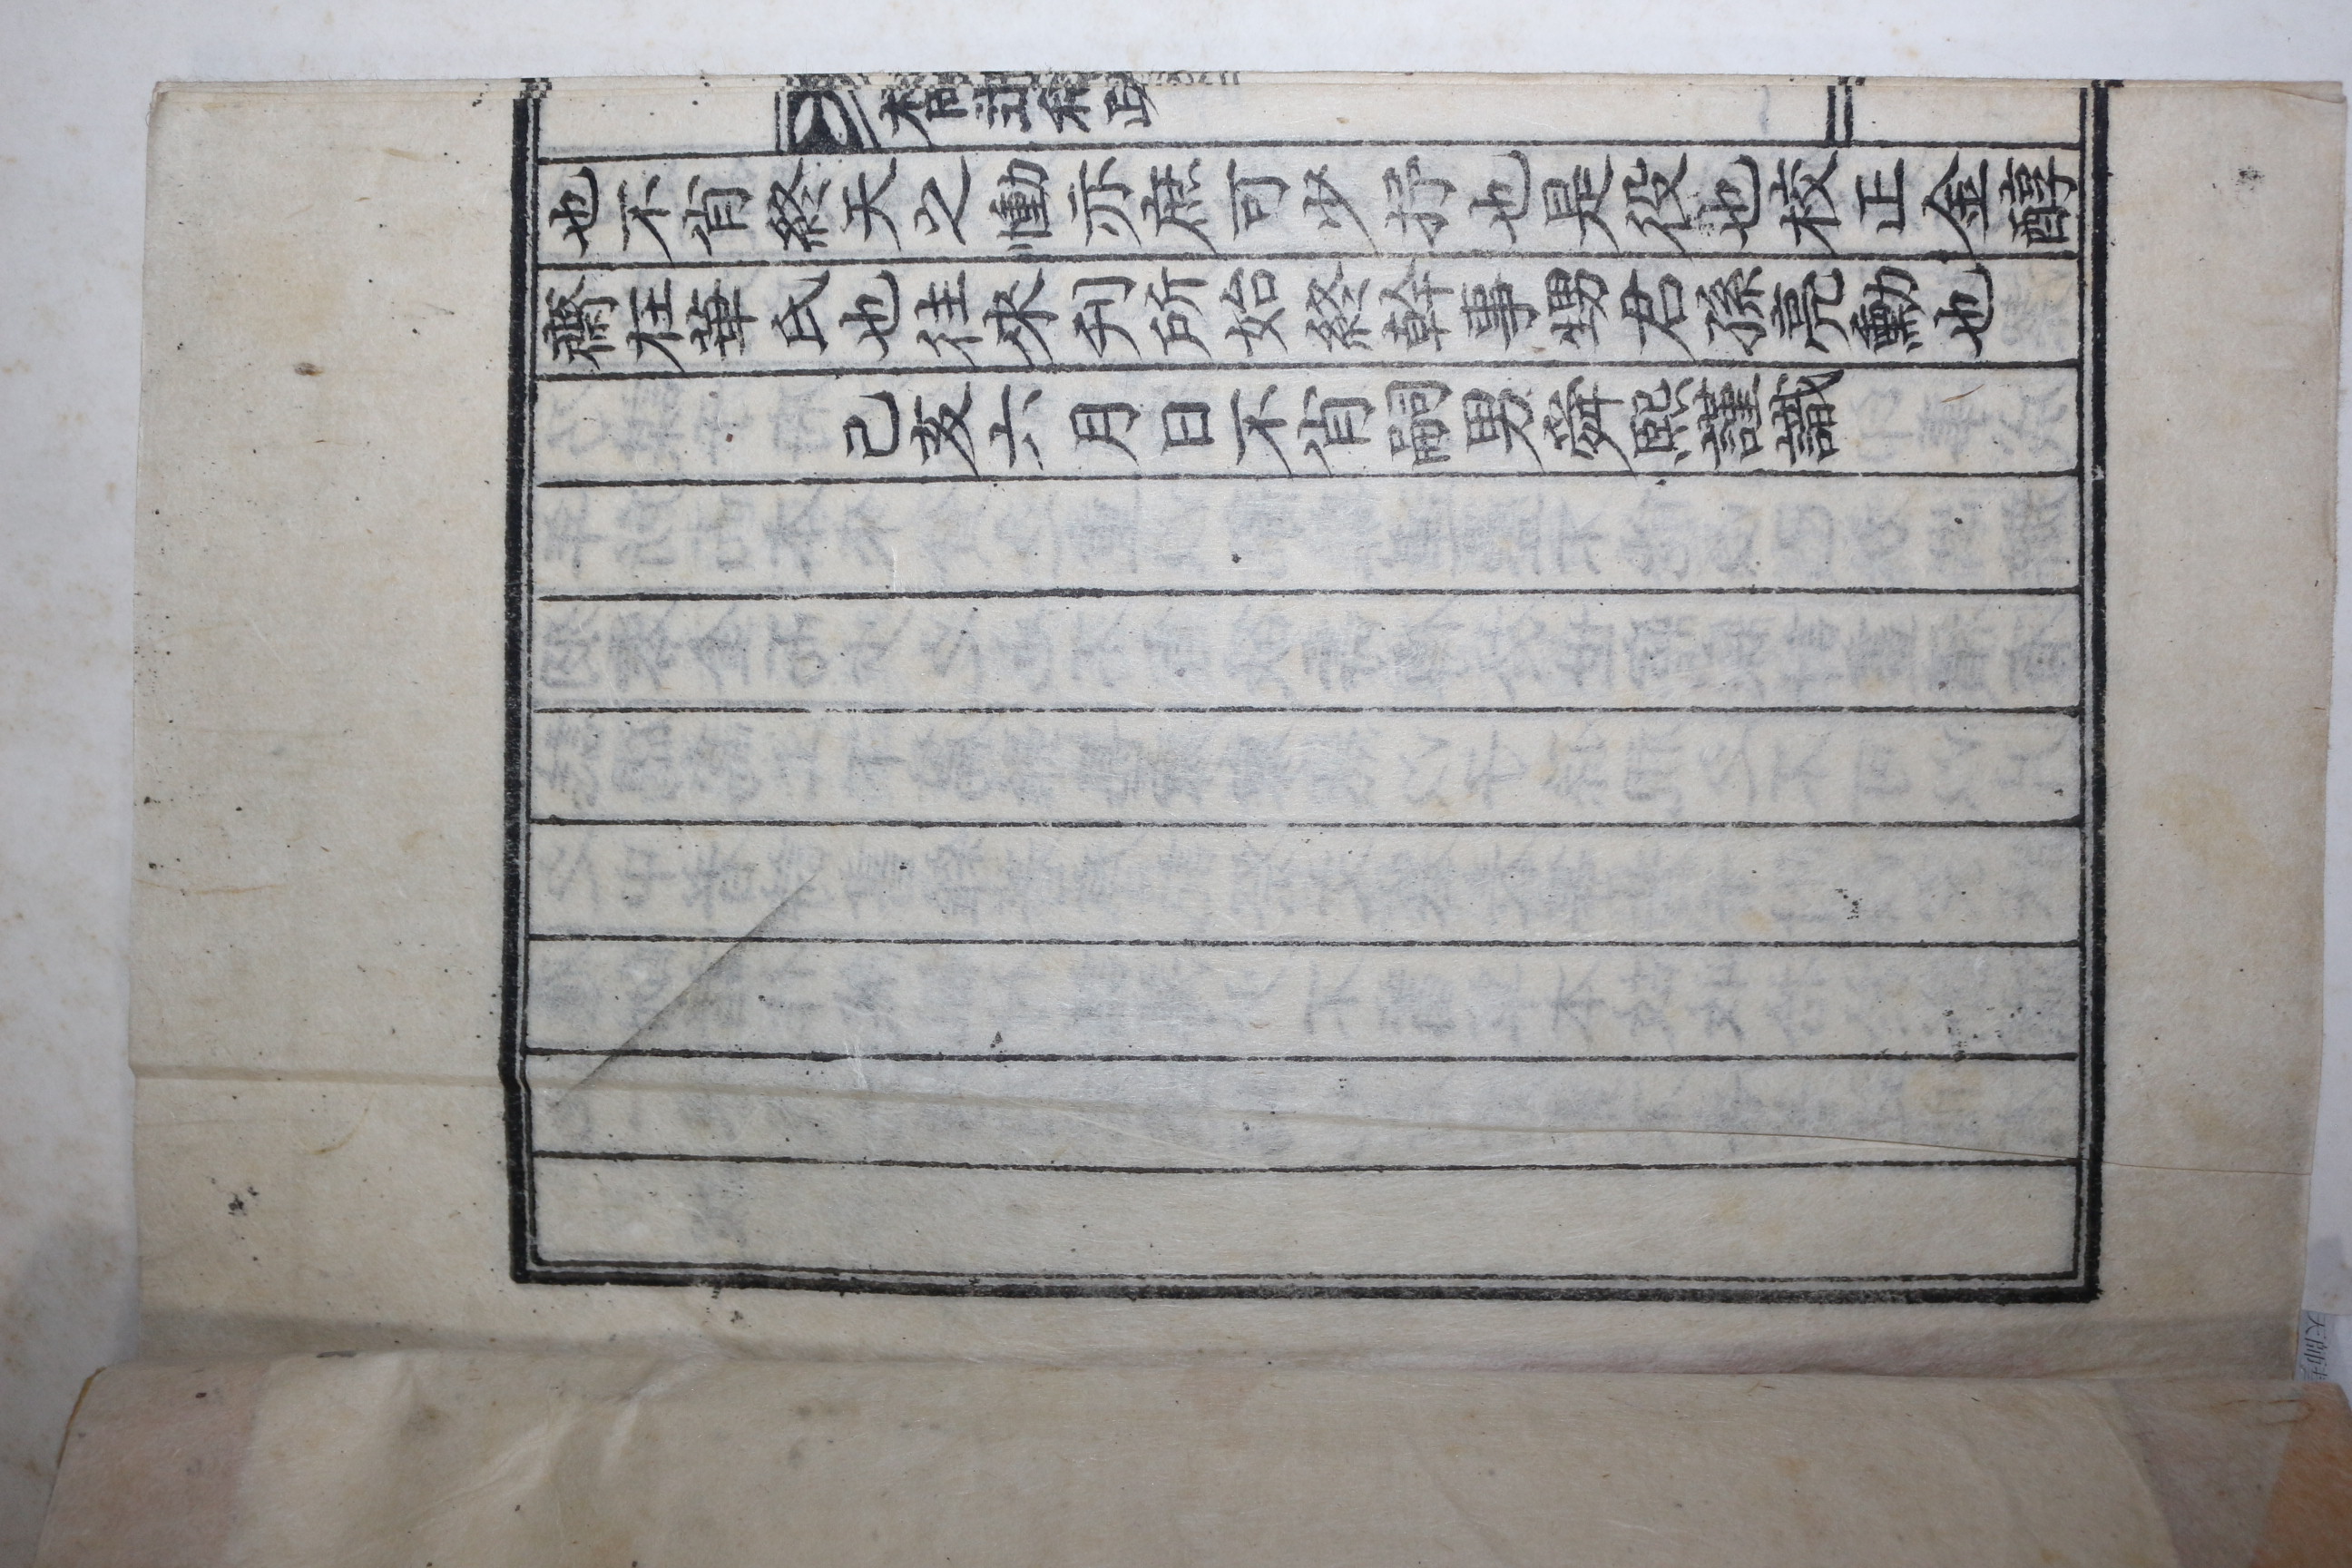 也不肖終天之慟亦庶可少抒也是役也校正金醇
齋在華氏也往來刊所始終幹事甥君孫亮勳也
己亥六月日不肖嗣男舜熙謹識